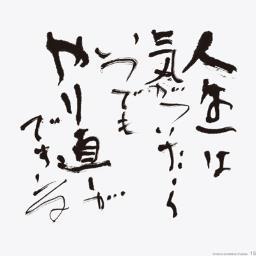 人生は
気がついたら
いつでも
やり直しが
できる
15